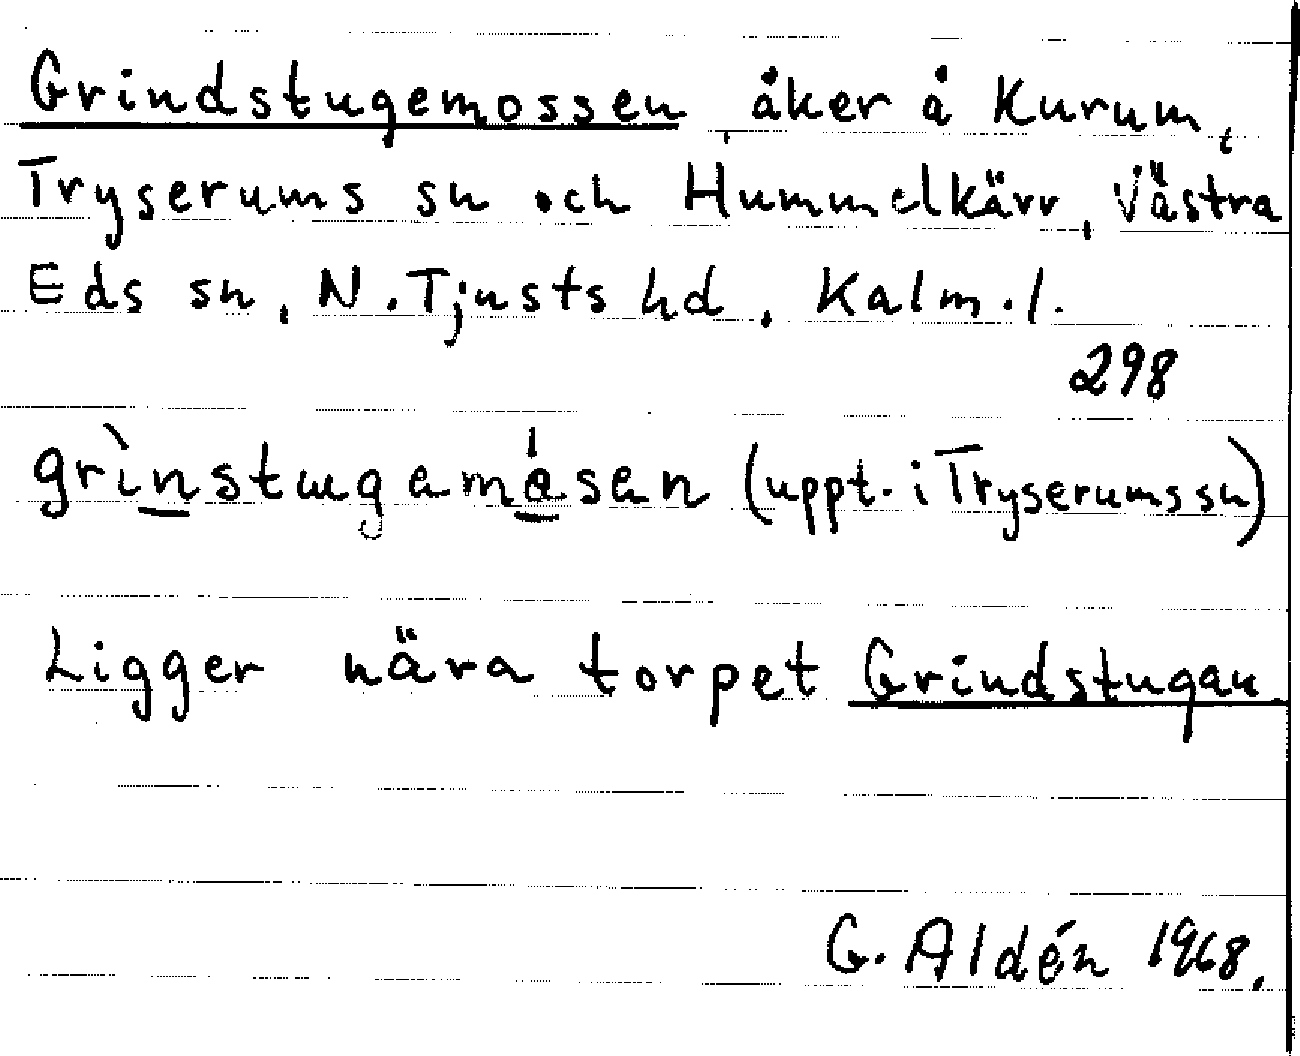 Grindstugemossen, åker å Kurum,
Tryserums sn och Hummelkärr, Västra
Eds sn, N. Tjusts hd, Kalm. l.
298
grìnstugamåsen (uppt. i Tryserums sn)
Ligger nära torpet Grindstugan.
G. Aldén 1968.